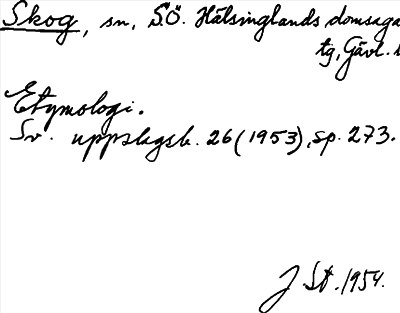 Skog, sn, S.Ö. Hälsinglands domsaga
tg, Gävl. l
Etymologi.
Sv. uppslagsb. 26 (1953), sp. 273.
J St. 1954.